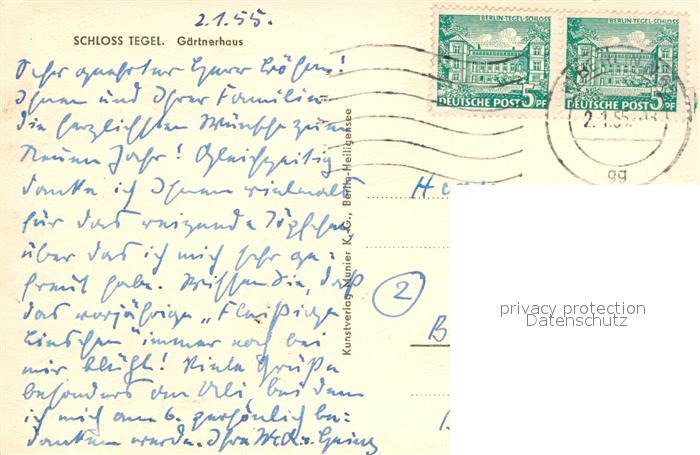 2.1.55.
SCHLOSS TEGEL. Gärtnerhaus
Sehr geehrter Herr
Ihnen und Ihrer Familie
die herzlichsten Wünsche zum
Neuen Jahr! Gleichzeitig
danke ich Ihnen vielmals
für das reizende Töpfchen
über das ich mich sehr ge-
freut habe. Wissen Sie, daß
das vorjährige „Fleißige
Lieschen" immer noch bei
mir blüht! Viele Grüße
besonders an Uli, bei dem
ich mich am 6. persönlich be-
danken werde. Ihre
Kunstverlag Kunier K.-G., Berlin-Heiligensee
BERLIN-TEGEL-SCHLOSS
DEUTSCHE POST 5 PF
BERLIN-TEGEL-SCHLOSS
DEUTSCHE POST 5 PF
2.1.55
gg
H
2
B
privacy protection
Datenschutz